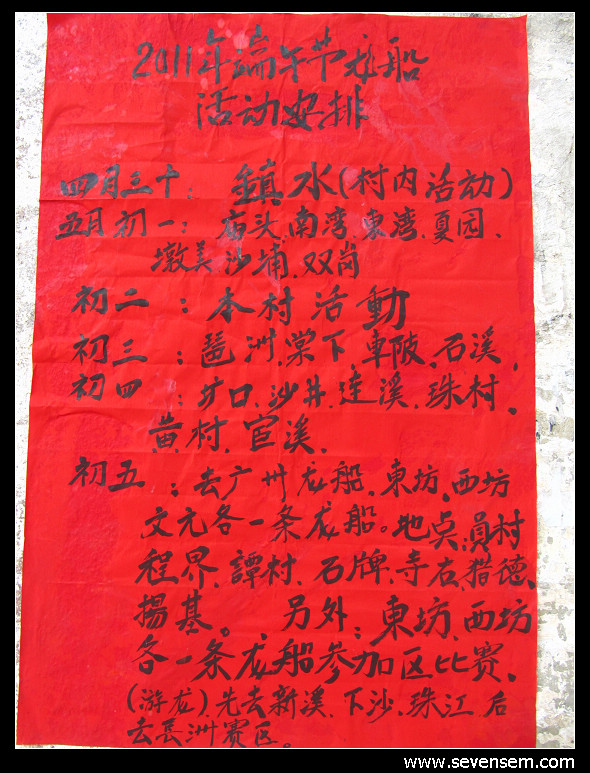 2011年端午节龙船
活动安排
四月三十：鎮水（村内活动）
五月初一：庙头、南湾、東湾、夏园、
墩美、沙埔、双岗
初二：本村活動
初三：琶洲、棠下、車陂、石溪、
初四：圹口、沙井、莲溪、珠村、
黄村、官溪、
初五：去广州龙船、東坊、西坊
文元各一条龙船。地点：員村
程界、譚村、石牌、寺右、猎德、
揚基。另外：東坊、西坊
各一条龙船参加区比赛。
(游龙)先去新溪、下沙、珠江、后
去長洲赛区。
www.sevensem.com